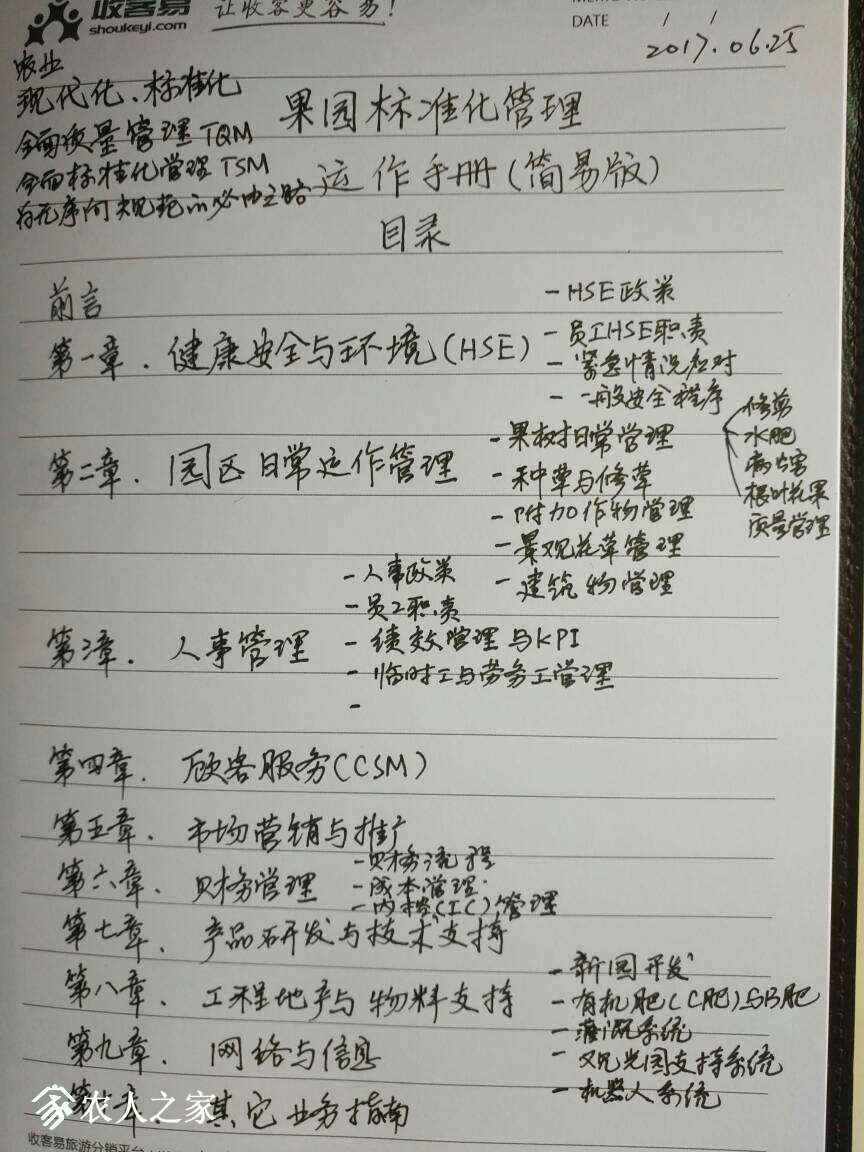 收客易
shoukeyi.com
让收客更容易！
DATE / /
2017.06.25
农业
现代化、标准化
全面质量管理 TQM
全面标准化管理 TSM
为无序向规范的必由之路
果园标准化管理
运作手册(简易版)
目录
前言
- HSE政策
第一章. 健康安全与环境(HSE)
- 员工HSE职责
- 紧急情况应对
- 一般安全程序
第二章. 园区日常运作管理
- 果树日常管理
修剪
水肥
病虫害
根叶花果
质量管理
- 种草与修草
- 附加作物管理
- 景观花草管理
- 建筑物管理
第三章. 人事管理
- 人事政策
- 员工职责
- 绩效管理与KPI
- 临时工与劳务工管理
-
第四章. 顾客服务(CSM)
第五章. 市场营销与推广
第六章. 财务管理
- 财务流程
- 成本管理
- 内控(IC)管理
第七章. 产品研发与技术支持
第八章. 工程地产与物料支持
- 新园开发
- 有机肥(C肥)与B肥
- 灌溉系统
- 观光园支持系统
- 机器人系统
第九章. 网络与信息
第十章. 其它业务指南
农人之家
收客易旅游分销平台